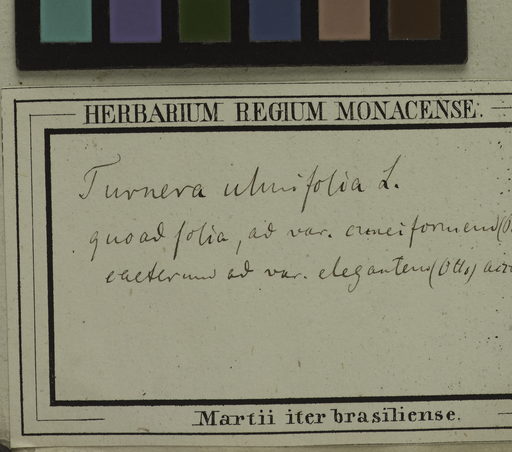 HERBARIUM REGIUM MONACENSE.
Turnera ulmifolia L.
quoad folia, ad var. cuneiformem
caeterum ad var. elegantem (Otto)
Martii iter brasiliense.